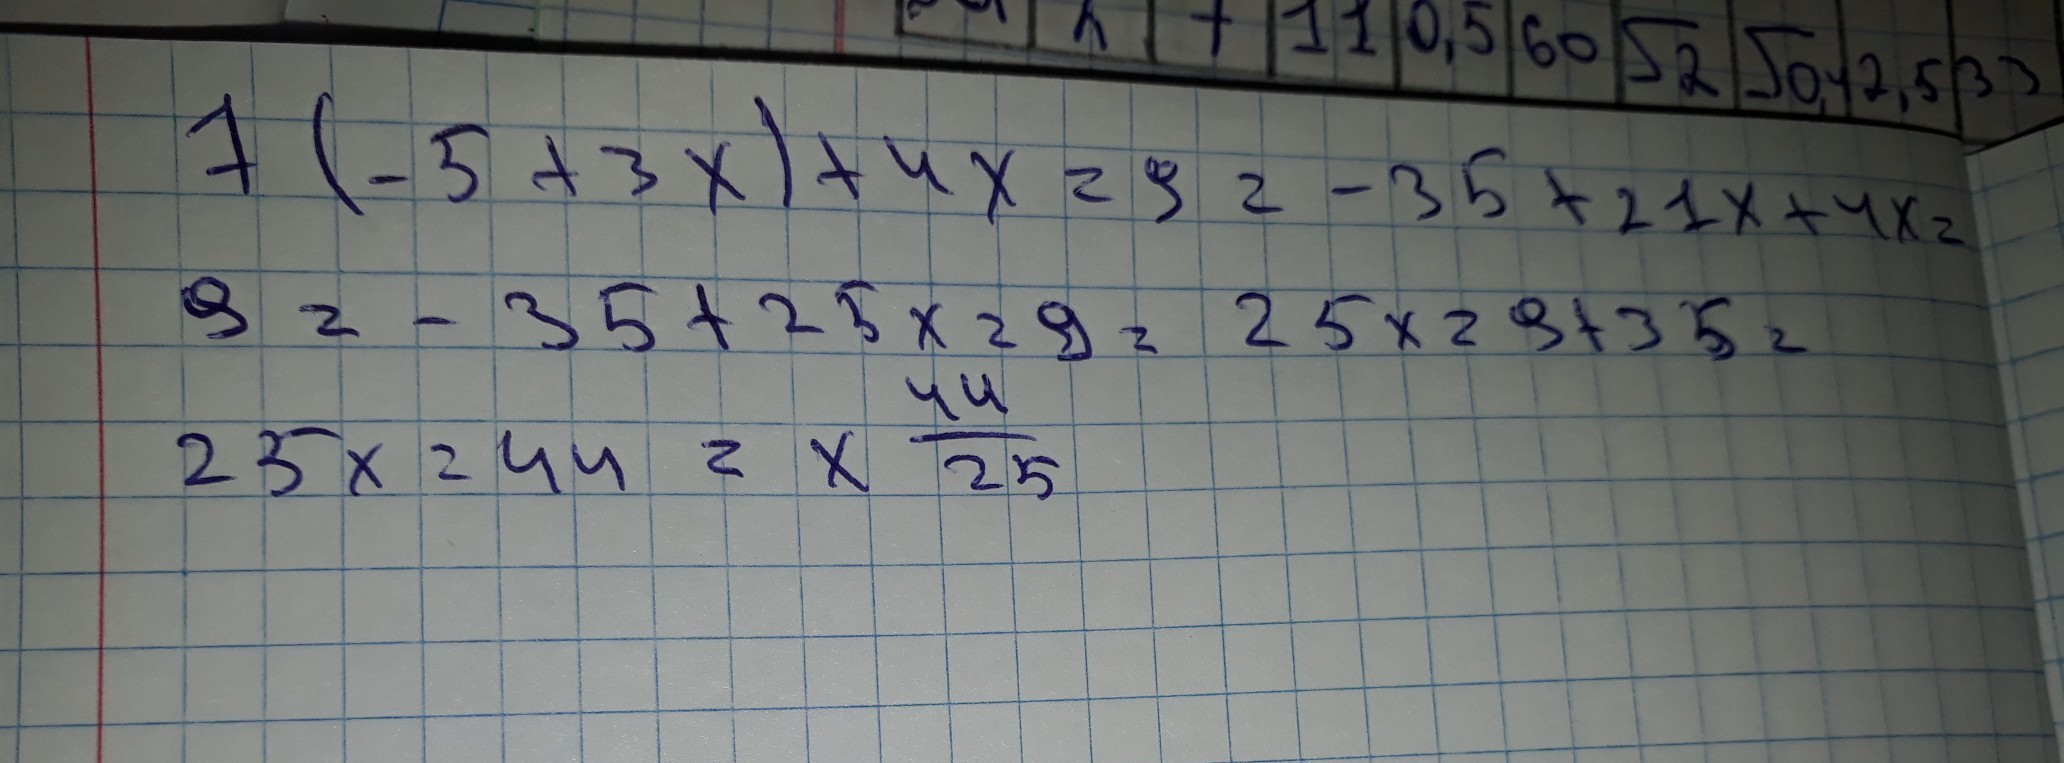 + 1 1 0,5 60 √2 √0,1 2,5 33
7(-5+3x)+4x=9=-35+21x+4x=
9=-35+25x=9=25x=9+35=
25x=44=x 44/25